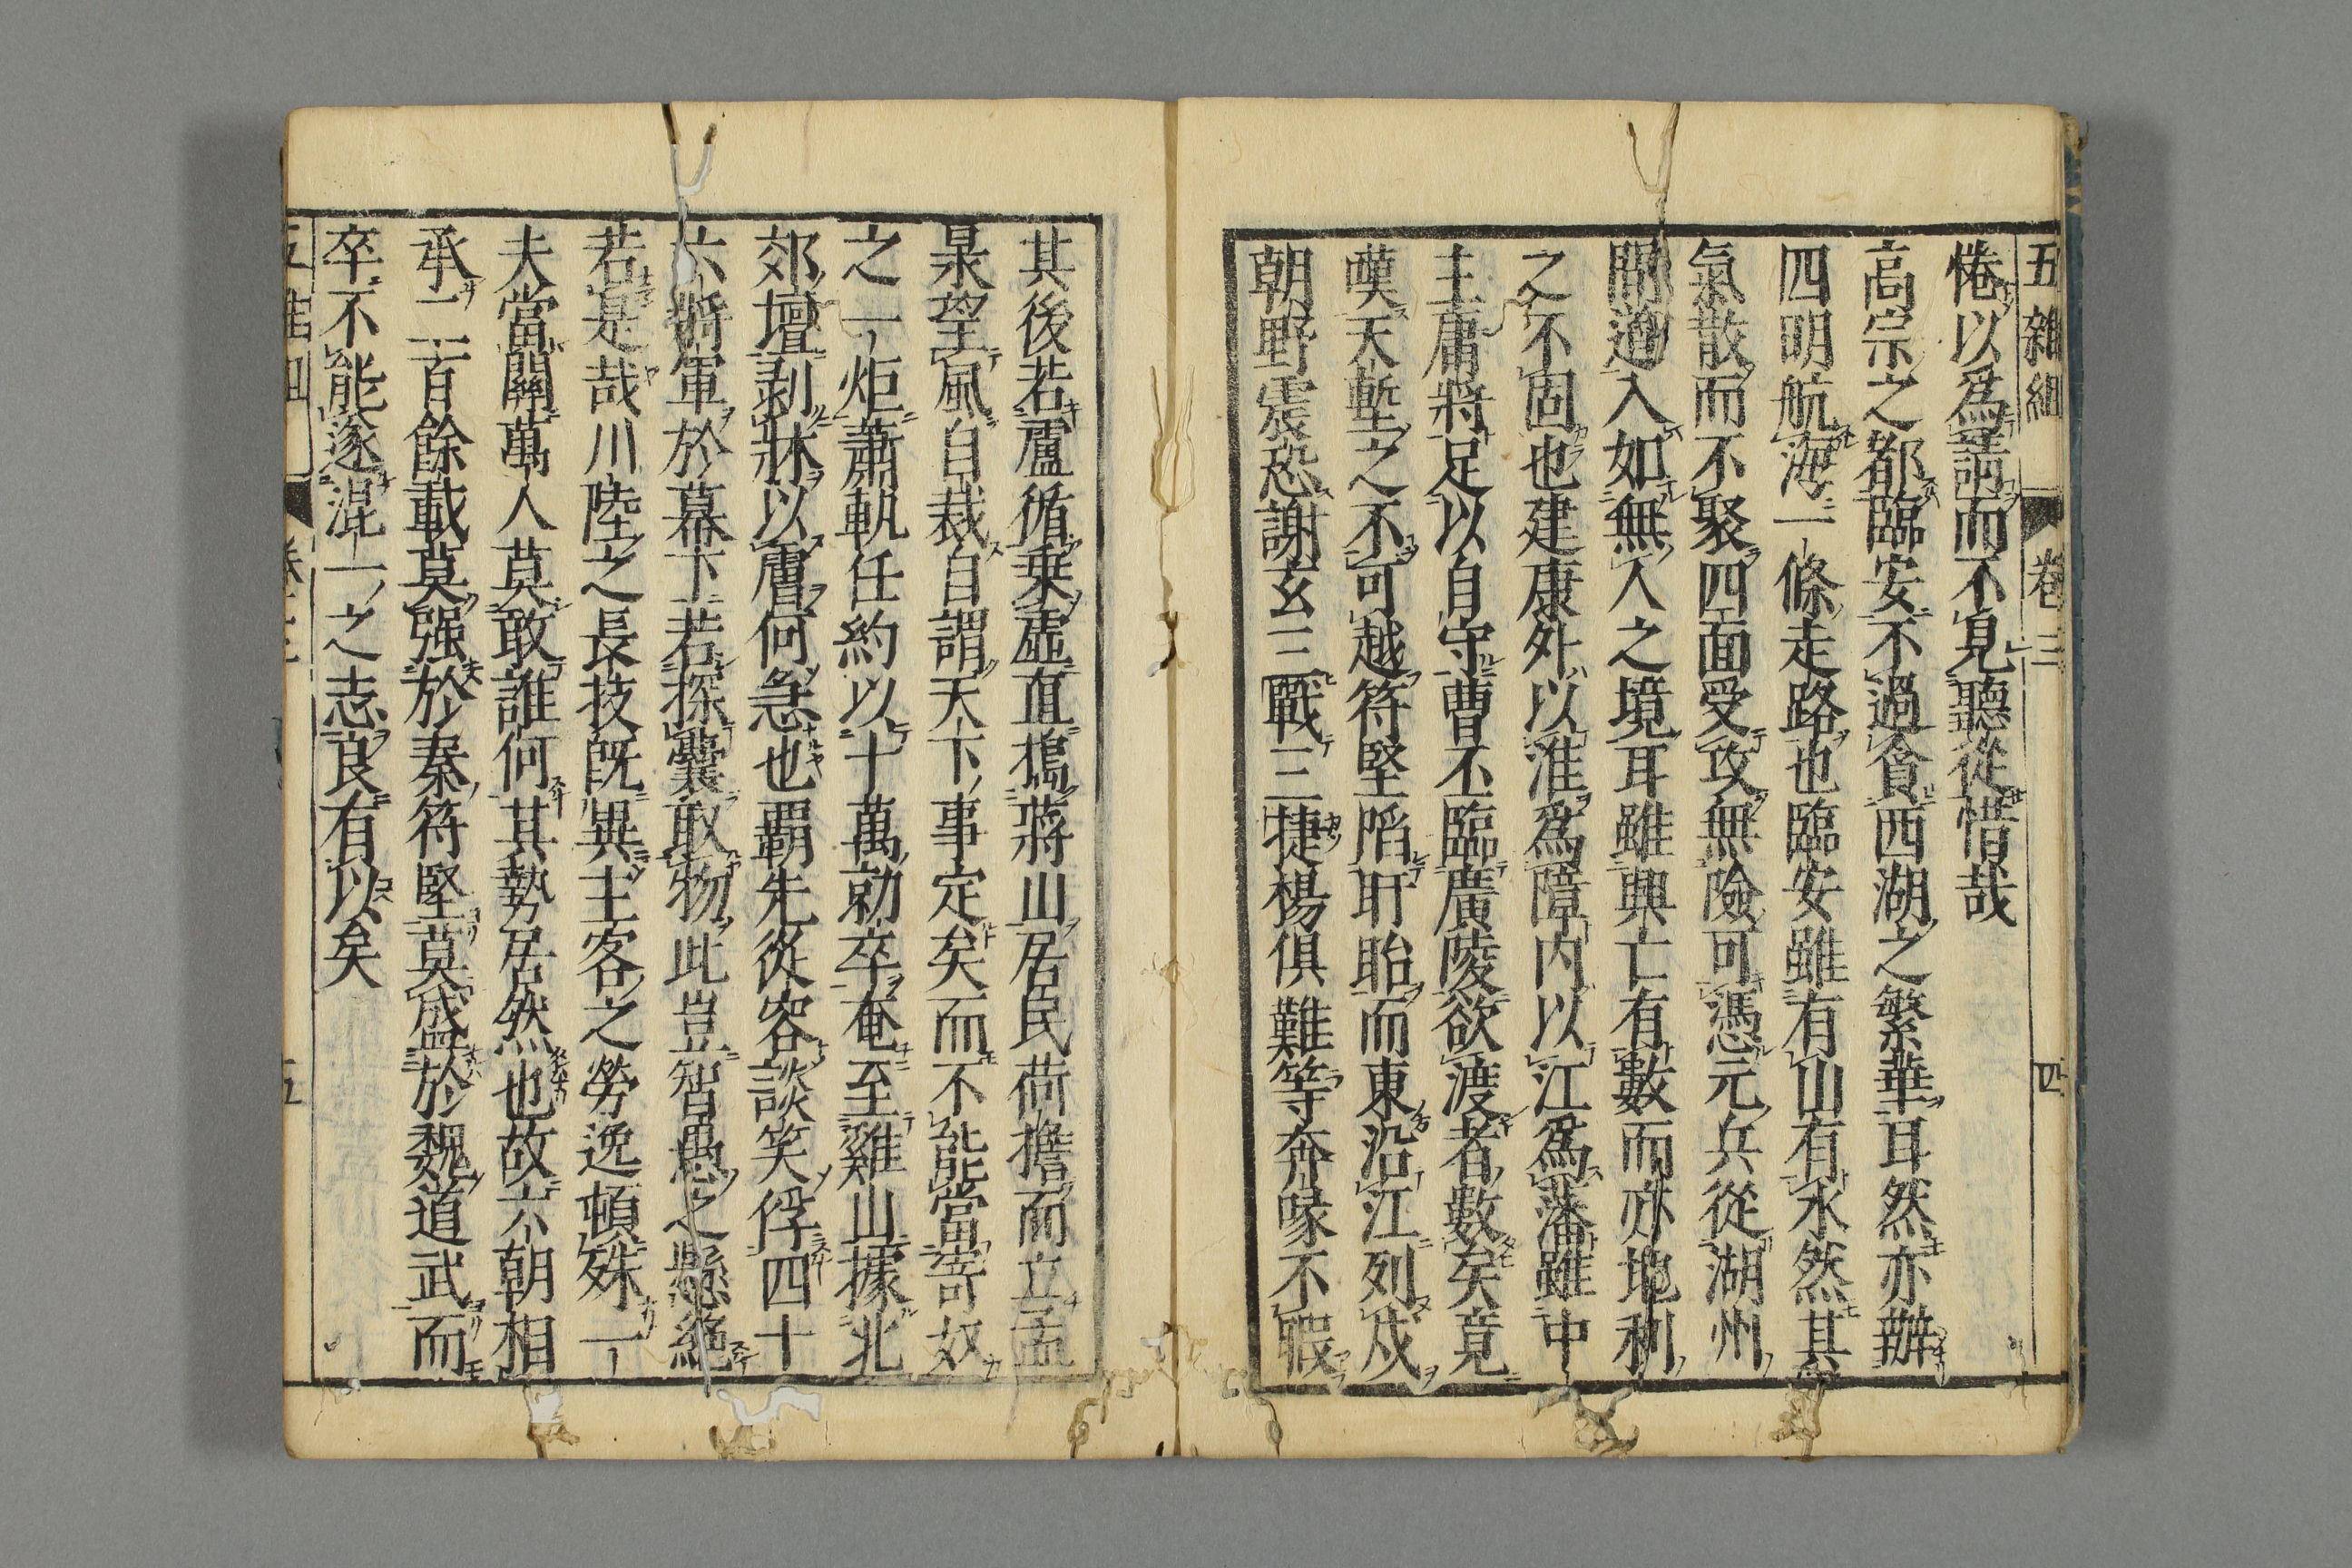 五雜組 卷三 四
惓以爲請而不見聽從惜哉
高宗之都臨安不過貪西湖之繁華耳然亦辦
四明航海一條走路也臨安雖有山有水然其
氣散而不聚四面受攻無險可憑元兵從湖州
間道入如無人之境耳雖興亡有數而亦地利
之不固也建康外以淮爲障內以江爲藩雖中
主庸將足以自守曹丕臨廣陵欲渡者數矣竟
嘆天塹之不可越符堅陷盱眙而東沿江列戍
朝野震恐謝玄三戰三捷楊俱難等奔喙不暇
其後若盧循乗虛直擣蔣山居民荷擔而立孟
㫤望風自裁自謂天下事定矣而不能當寄奴
之一炬蕭軌任約以十萬勍卒奄至雞山據北
郊壇剥牀以膚何急也覇先從容談笑俘四十
六將軍於幕下若探囊取物此豈智愚之懸絕
若是哉川陸之長技旣異主客之勞逸頓殊一
夫當關萬人莫敢誰何其勢居然也故六朝相
承二三百餘載莫强於秦符堅莫盛於魏道武而
卒不能遂混一之志良有以矣
五